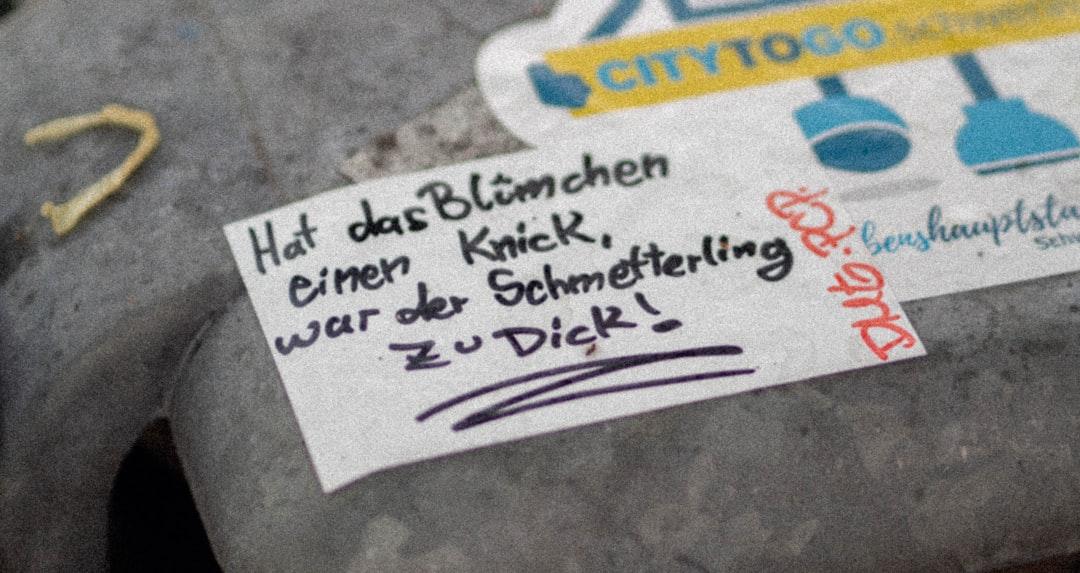 CITYTOGO
Hat das Blümchen
einen Knick,
war der Schmetterling
zu Dick!
benshauptsta